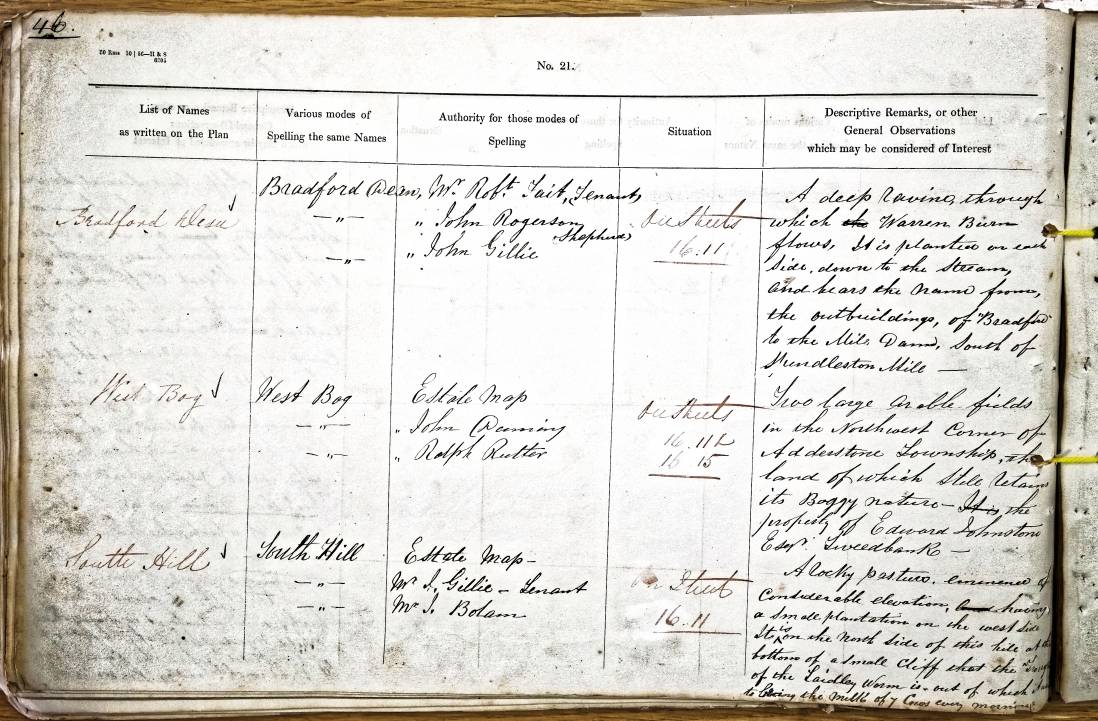 46.
No. 21.
List of Names
as written on the Plan
Various modes of
Spelling the same Names
Authority for those modes of
Spelling
Situation
Descriptive Remarks, or other
General Observations
which may be considered of Interest
Bradford Dean
Bradford Dean, Mr. Robt. Tait, Tenant,
—„— „ John Rogerson
Shepherd,
—„— „ John Gillie
On Sheets
16.11
A deep ravine, through
which the Warren Burn
flows, It is planted on each
side, down to the Stream,
and bears the name from,
the outbuildings, of "Bradford"
to the Mill Dam, South of
Spindleston Mill —
West Bog
West Bog Estate Map
—„— „ John Deming
—„— „ Ralph Rutter
On Sheets
16.11&
16 15
Two large arable fields
in the Northwest Corner of
Adderstone Township, the
land of which still retains
its Boggy nature — It is the
property of Edward Johnstone
Esqr. Tweedbank —
South Hill
South Hill Estate Map —
—„— Mr. J. Gillie — Tenant
—„— Mr. J. Bolam
On Sheet
16.11
A rocky pasture, eminence of
Considerable elevation, and having
a small plantation on the west side
It is on the North side of this hill at the
bottom of a small Cliff that the
of the Laidley Worm is out of which
to the Milk of 7 Cows every morning